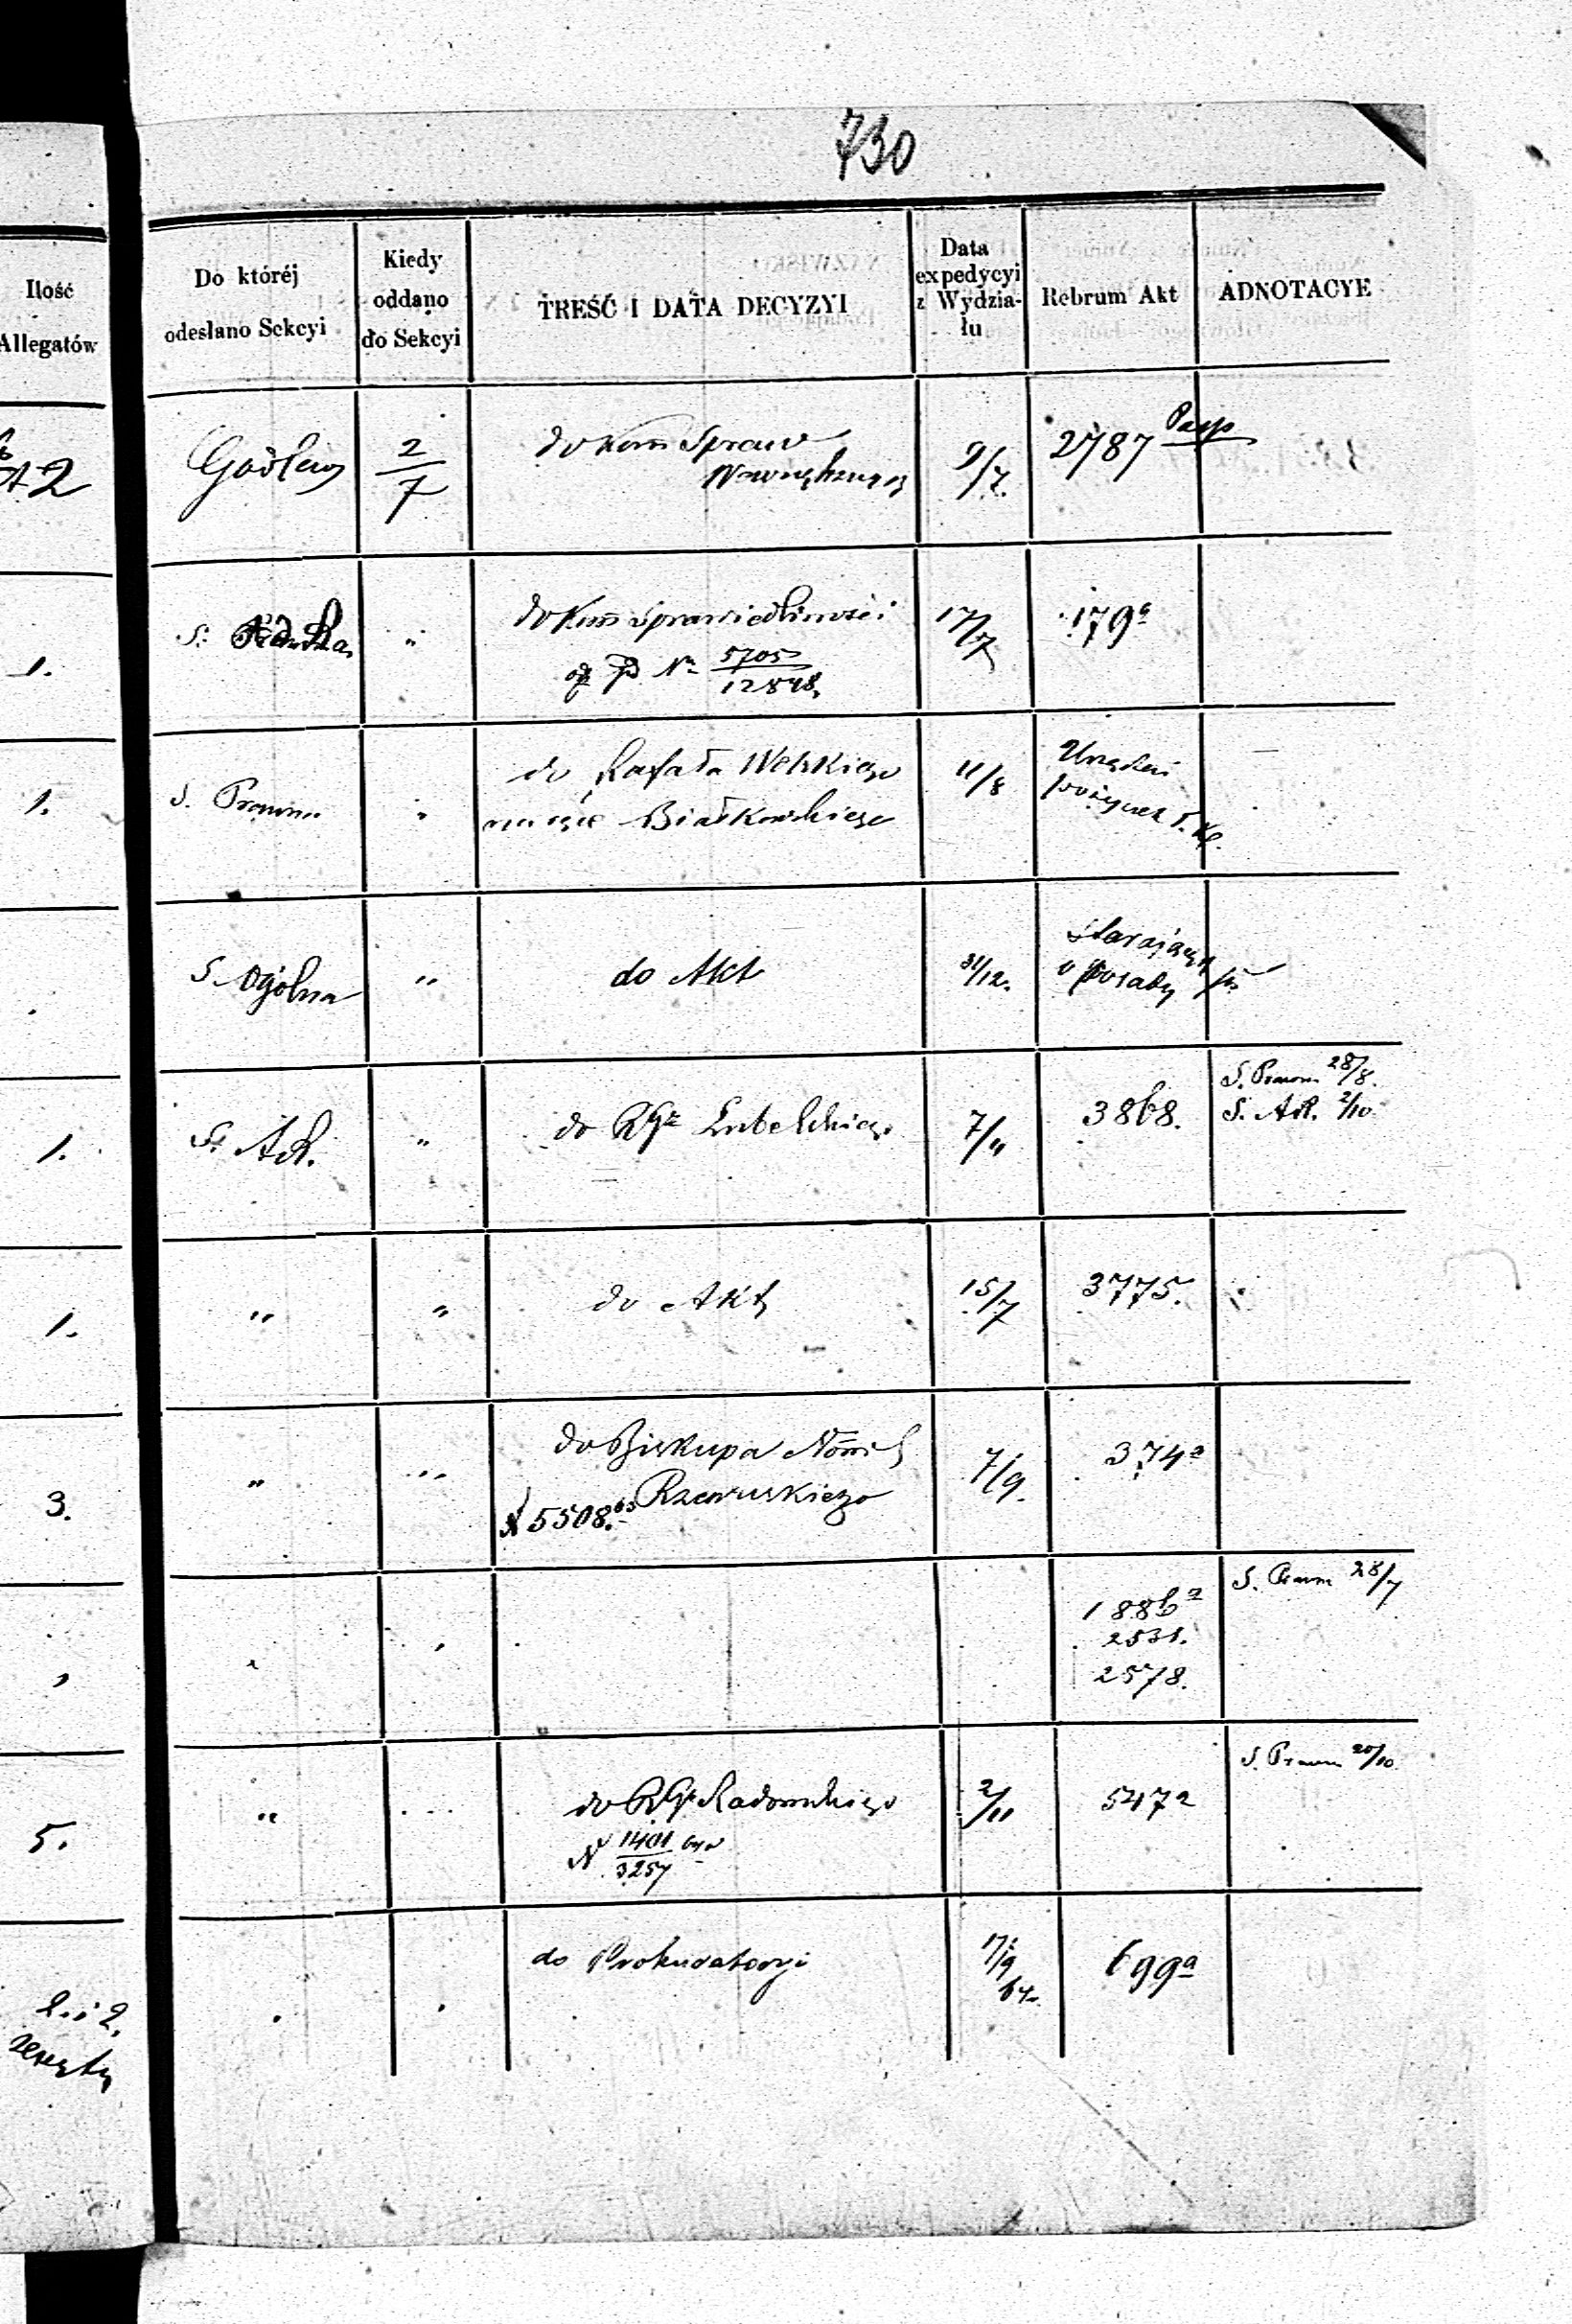 730
Ilość
Allegatów
Do któréj
odesłano Sekcyi
Kiedy
oddano
do Sekcyi
TREŚĆ I DATA DECYZYI
Data
expedycyi
z Wydzia-
łu
Rebrum Akt
ADNOTACYE
2
2/7
do Kom Spraw
Wewnętrznych
9/7.
2787
1.
S.
"
do Kom Sprawiedliwości
N 5705/12848.
17/7
179
1.
S. Prawna
"
do Rafała Welskiego
Białkowskiego
11/8
pożyczek
S. Ogólna
"
do Akt
31/12.
starających
o posady
1.
S. Ad.
"
do RGu Lubelskiego
7/11
3868.
S. Prawn 28/8.
S. Ad. 2/10.
1.
"
"
do Akt
15/7
3775.
3.
"
"
do Biskupa Nom
Rzewuskiego
N 5508.
7/9.
374a
"
1886a
2531.
2578.
S. Prawn 28/7
5.
"
do RGu Radomskiego
N 1401/3257
2/11
547a
S. Prawn 20/10.
2. i 2.
zeszyty
do Prokuratoryi
17/9
64.
699a